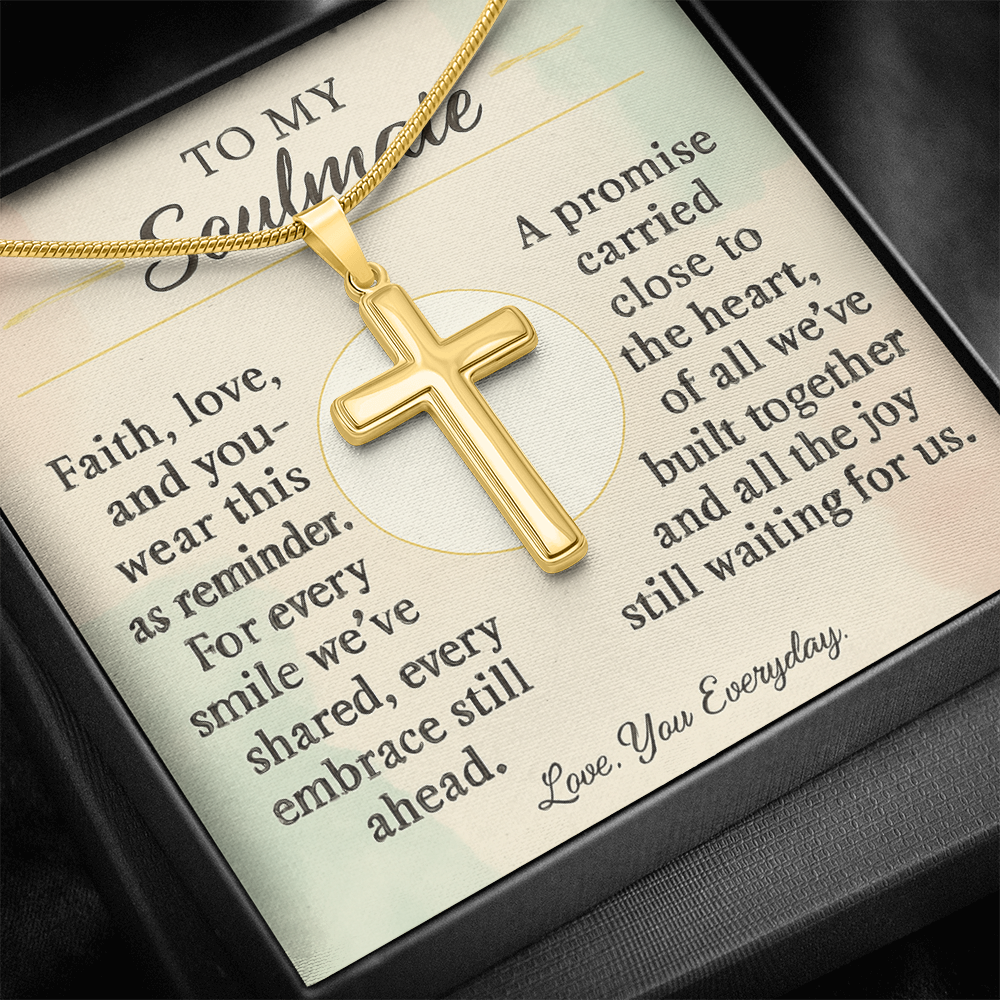 TO MY
Soulmate
Faith, love,
and you-
wear this
as reminder.
For every
smile we've
shared, every
embrace still
ahead.
A promise
carried
close to
the heart,
of all we've
built together
and all the joy
still waiting for us.
Love. You Everyday.